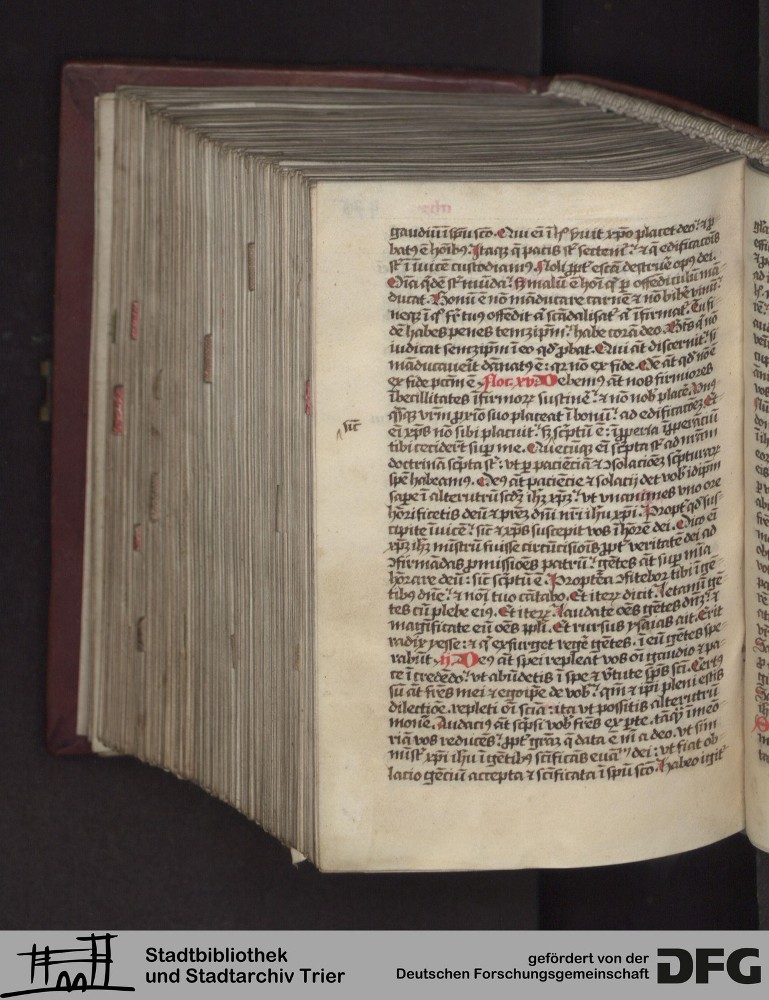 gaudiū ī spū sco. Qui eī ī ħ ẜuit xp̄o placet deo. ⁊ ꝓ
batꝰ ē hōībꝰ. Itaqꝫ q̄ pacis st̄ sectem̄. ⁊ q̄ edificatōis
st̄ ī īuicē custodiamꝰ. Noli ꝓpt̄ escā destruē opꝰ dei.
Oīa qͥdē st̄ mūda. sꝫ malū ē hōī qͥ ꝑ offēdiculū mā
ducat. Bonū ē nō māducare carnē ⁊ nō bibē vinū.
neqꝫ ī qͦ fr̄ tuꝰ offēdit aͭ scādalisat̄ aͭ īfirmat̄. Tu fi
dē habes penes temꝫip̄m. habe corā deo. Bt̄s qͥ nō
iudicat semꝫip̄m ī eo qd̓ ꝓbat. Qui aūt discernit. si
māducauerit dānatꝰ ē. qꝛ nō ex fide. Oē aūt qd̓ nō ē
ex fide pctm̄ ē. Ro. xv. Debemꝰ aūt nos firmiores
ībecillitates īfirmoꝝ sustinē. ⁊ nō nob̄ placē. Vnꝰ
qͥsqꝫ vr̄m ꝓxīo suo placeat ī bonū. ad edificatōeꝫ. Et
eī xp̄s nō sibi placuit. sꝫ scͥptū ē. īꝓperia īꝓperātiū
sic̄
tibi cecider̄t suꝑ me. Quecūqꝫ eī scͥpta st̄ ad nr̄am
doctrinā scͥpta st̄. vt ꝑ paciēciā ⁊ ꝯsolacōeꝫ scͥpturaꝝ
spē habeamꝰ. Deꝰ aūt paciēcie ⁊ solacij det vob̄ idip̄m
sapē ī alterutrū scd̓ꝫ ih̄ꝫ xp̄ꝫ. vt vnanimes vno ore
hōrificetis deū ⁊ pr̄eꝫ dn̄i nr̄i ih̄u xp̄i. Propt̄ qd̓ sus
cipite īuicē. sic̄ ⁊ xp̄s suscepit vos ī hōrē dei. Dico eī
xp̄ꝫ ih̄ꝫ mīstrū fuisse circūcisiōis ꝓpt̄ veritatē dei ad
ꝯfirmādas ꝓmissiōes patrū. gētes aūt suꝑ mīa
hōrare deū. sic̄ scͥptū ē. Propterea ꝯfitebor tibi ī gē
tibꝰ dn̄e. ⁊ noī tuo cātabo. Et iteꝝ dicit. letamī gē
tes cū plebe eiꝰ. Et iteꝝ. laudate oēs gētes dn̄ꝫ. ⁊
magnificate eū oēs ppl̄i. Et rursus ysaias ait. Erit
radix yesse. ⁊ qͥ exsurget regē gētes. ī eū gētes spe
rabūt. ij. Deꝰ aūt spei repleat vos oī gaudio ⁊ pa
ce ī credēdo. vt abūdetis ī spe ⁊ v̓tute spūs sci. Certꝰ
sū aūt fr̄es mei ⁊ ego ip̄e de vob̄. qm̄ ⁊ ip̄i pleni estis
dilectiōe. repleti oī sciā. ita vt possitis alterutrū
monē. Audaciꝰ aūt scͥpsi vob̄ fr̄es ex ꝑte. taqͣꝫ ī meō
riā vos reducēs. ꝓpt̄ grāꝫ q̄ data ē m̄ a deo. vt sim
mīst̄ xp̄i ih̄u ī gētibꝰ scīficās euāᵐ dei. vt fiat ob
lacio gēciū accepta ⁊ scīficata ī spū sco. Habeo igit̄
Stadtbibliothek
und Stadtarchiv Trier
gefördert von der
Deutschen Forschungsgemeinschaft
DFG